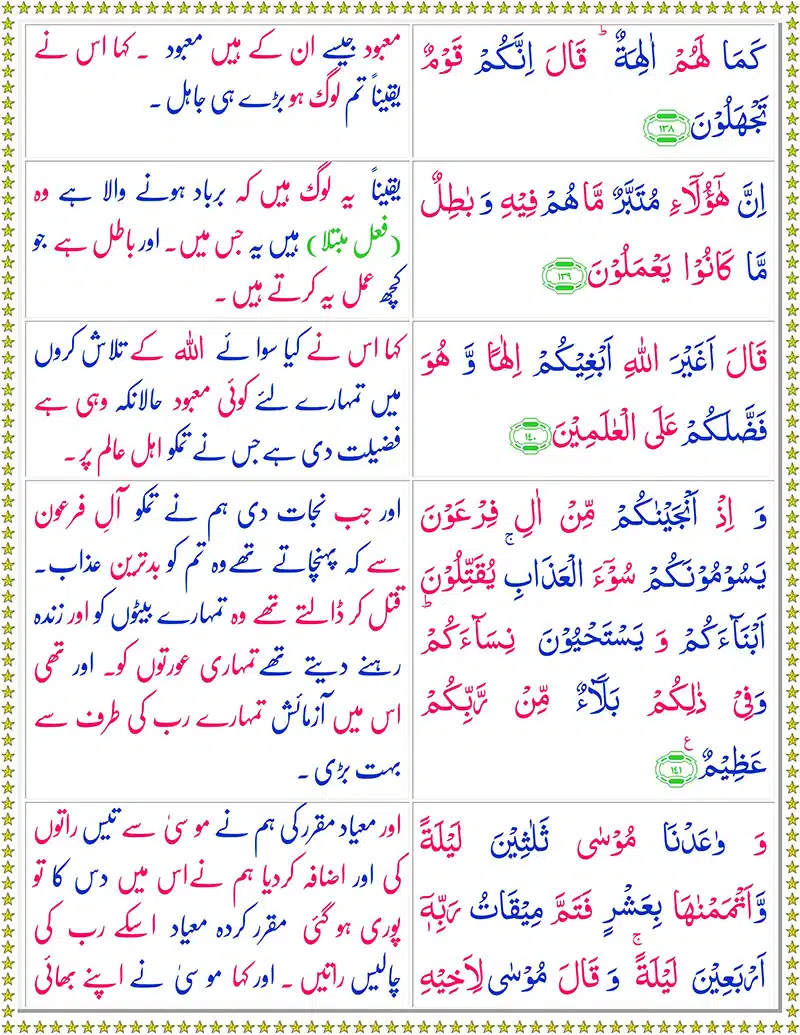 كَمَا لَهُمْ اٰلِهَةٌ ؕ قَالَ اِنَّكُمْ قَوْمٌ
تَجْهَلُوْنَ ١٣٨
معبود جیسے ان کے ہیں معبود ۔ کہا اس نے
یقیناً تم لوگ ہو بڑے ہی جاہل ۔
اِنَّ هٰۤؤُلَآءِ مُتَبَّرٌ مَّا هُمْ فِيْهِ وَ بٰطِلٌ
مَّا كَانُوْا يَعْمَلُوْنَ ١٣٩
یقیناً یہ لوگ ہیں کہ برباد ہونے والا ہے وہ
(فعل مبتلا) ہیں یہ جس میں۔ اور باطل ہے جو
کچھ عمل یہ کرتے ہیں ۔
قَالَ اَغَيْرَ اللّٰهِ اَبْغِيْكُمْ اِلٰهًا وَّ هُوَ
فَضَّلَكُمْ عَلَى الْعٰلَمِيْنَ ١٤٠
کہا اس نے کیا سوائے اللہ کے تلاش کروں
میں تمہارے لئے کوئی معبود حالانکہ وہی ہے
فضیلت دی ہے جس نے تمکو اہل عالم پر ۔
وَ اِذْ اَنْجَيْنٰكُمْ مِّنْ اٰلِ فِرْعَوْنَ
يَسُوْمُوْنَكُمْ سُوْٓءَ الْعَذَابِ ۚ يُقَتِّلُوْنَ
اَبْنَآءَكُمْ وَ يَسْتَحْيُوْنَ نِسَآءَكُمْ ؕ
وَفِيْ ذٰلِكُمْ بَلَآءٌ مِّنْ رَّبِّكُمْ
عَظِيْمٌ ١٤١ ع
اور جب نجات دی ہم نے تمکو آلِ فرعون
سے کہ پہنچاتے تھے وہ تم کو بدترین عذاب۔
قتل کر ڈالتے تھے وہ تمہارے بیٹوں کو اور زندہ
رہنے دیتے تھے تمہاری عورتوں کو۔ اور تھی
اس میں آزمائش تمہارے رب کی طرف سے
بہت بڑی ۔
وَ وٰعَدْنَا مُوْسٰى ثَلٰثِيْنَ لَيْلَةً
وَّاَتْمَمْنٰهَا بِعَشْرٍ فَتَمَّ مِيْقَاتُ رَبِّهٖۤ
اَرْبَعِيْنَ لَيْلَةً ۚ وَ قَالَ مُوْسٰى لِاَخِيْهِ
اور معیاد مقرر کی ہم نے موسیٰ سے تیس راتوں
کی اور اضافہ کردیا ہم نے اس میں دس کا تو
پوری ہو گئی مقرر کردہ معیاد اسکے رب کی
چالیس راتیں ۔ اور کہا موسیٰ نے اپنے بھائی